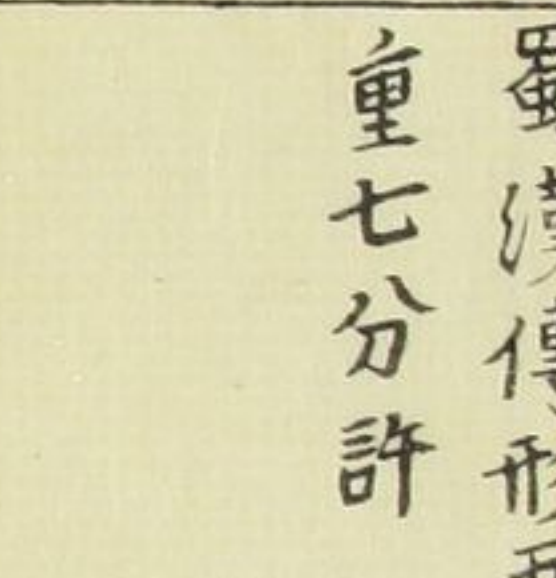 蜀漢傳形
重七分許